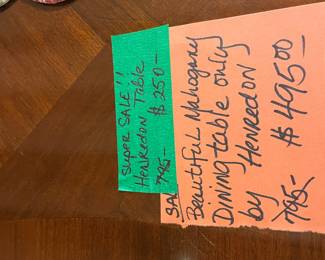 Super SALE!!
Henredon Table
795- $250-
SA
Beautiful Mahogany
Dining table only
by Henredon
795- $495.00